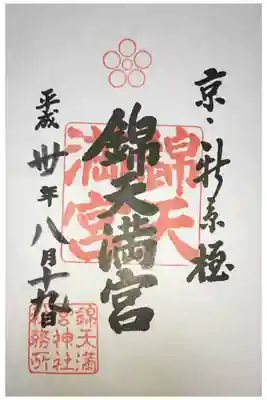 京・新京極
錦天満宮
平成卅年八月十九日
錦天
満宮
錦天満
宮神社
務所